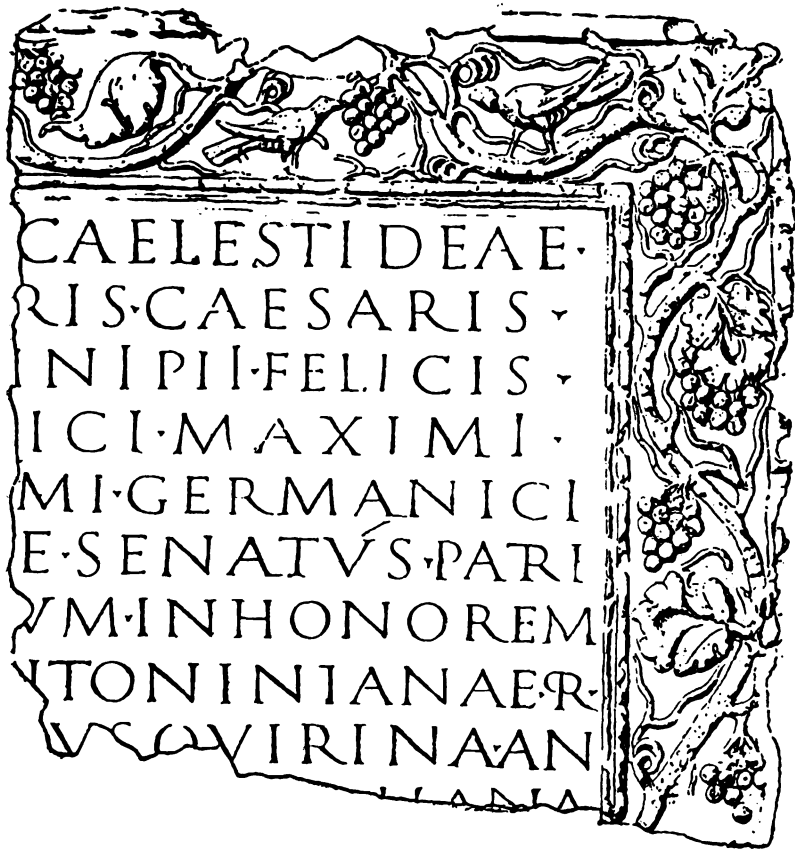 CAELESTI DEAE·
RIS·CAESARIS·
NIPII·FELICIS·
ICI·MAXIMI·
MI·GERMANICI
E·SENATVS·PARI
VM·IN HONOREM
NTONINIANAE·R·
QVIRINA·AN